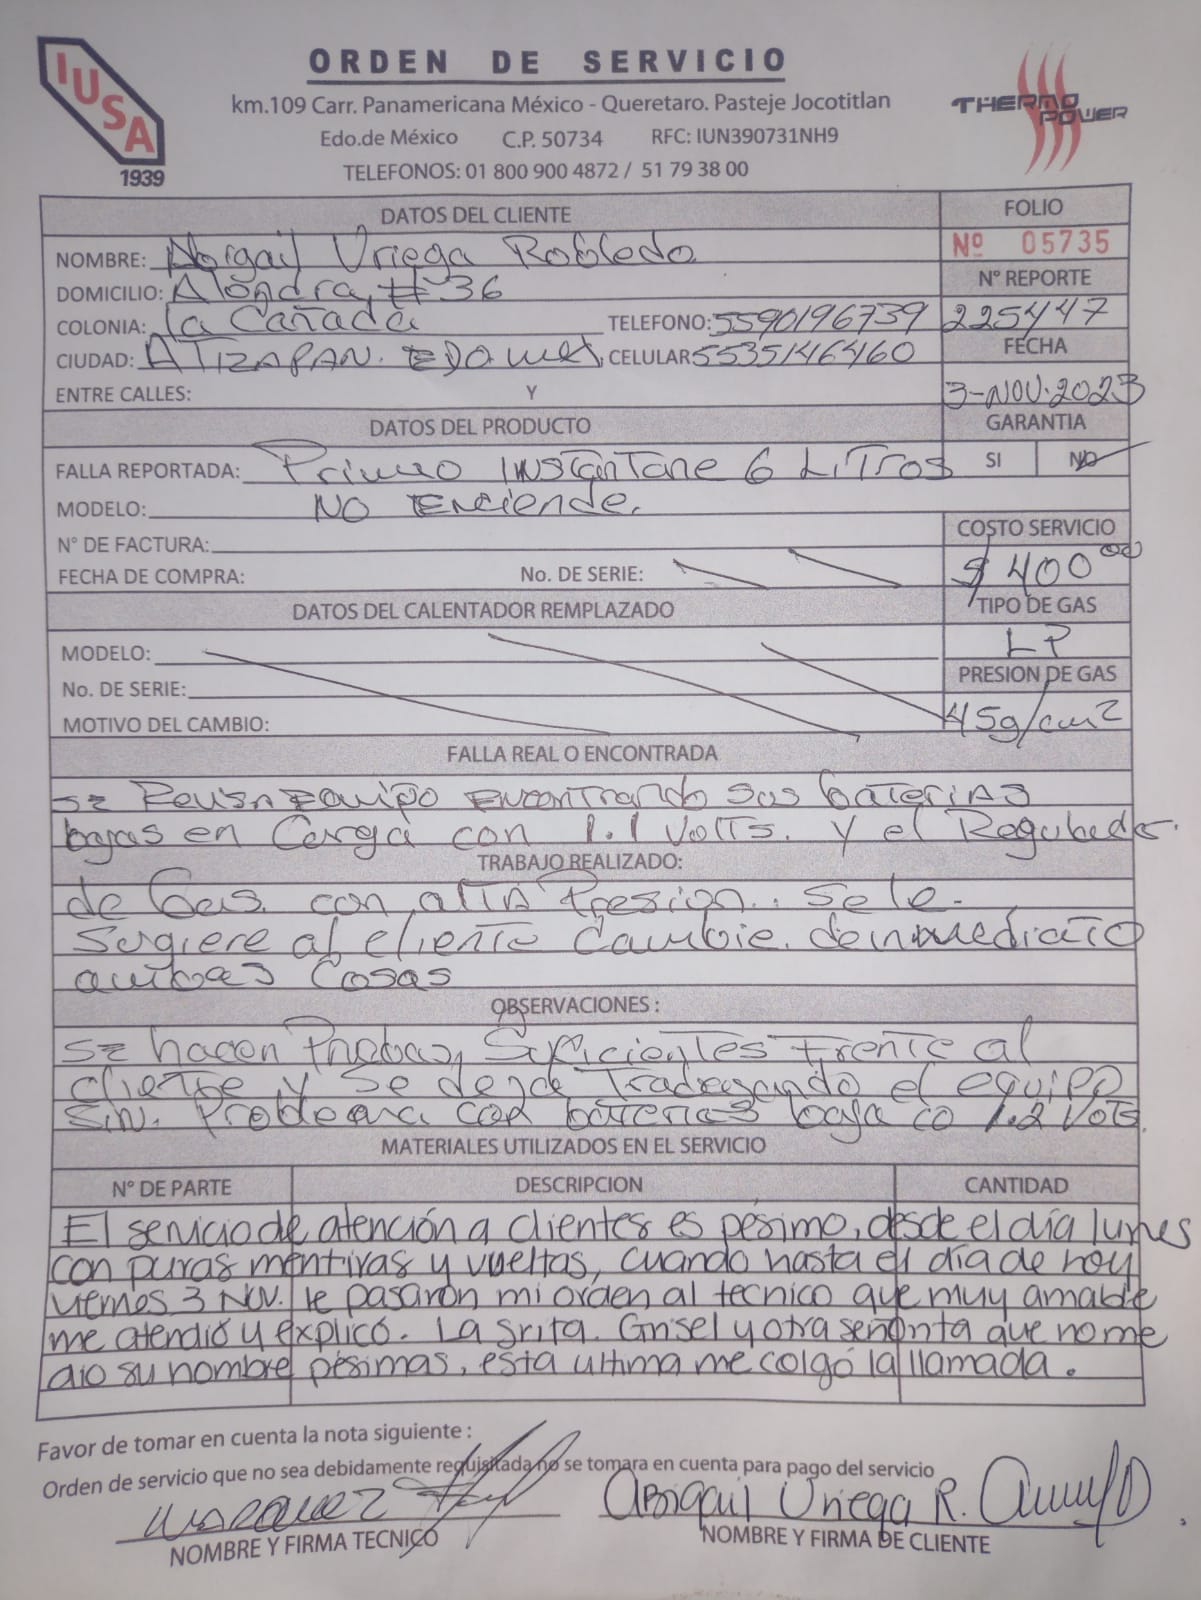 IUSA
1939
ORDEN DE SERVICIO
km.109 Carr. Panamericana México - Queretaro. Pasteje Jocotitlan
Edo.de México C.P. 50734 RFC: IUN390731NH9
TELEFONOS: 01 800 900 4872 / 51 79 38 00
THERMO POWER
DATOS DEL CLIENTE
FOLIO
Nº 05735
NOMBRE: Abigail Uriega Robledo
Nº REPORTE
225447
DOMICILIO: Alondra, # 36
COLONIA: la Cañada TELEFONO: 5590196739
CIUDAD: ATIZAPAN. EDO mex, CELULAR 5535146460
FECHA
3-NOV-2023
ENTRE CALLES: Y
DATOS DEL PRODUCTO
GARANTIA
SI NO
FALLA REPORTADA: Primo INSTANTANE 6 LITROS
MODELO: NO Enciende.
COSTO SERVICIO
$ 400 00
N° DE FACTURA:
FECHA DE COMPRA: No. DE SERIE:
DATOS DEL CALENTADOR REMPLAZADO
TIPO DE GAS
LP
MODELO:
No. DE SERIE:
PRESION DE GAS
45g/cm2
MOTIVO DEL CAMBIO:
FALLA REAL O ENCONTRADA
se Revisa equipo encontrando sus baterias
bajas en Carga con 1.1 Volts. y el Regulador
TRABAJO REALIZADO:
de Gas. con alta Presion. Se le.
Sugiere al cliente Cambie. de inmediato
ambas Cosas
OBSERVACIONES :
se hacen Pruebas Suficientes Frente al
cliente y se deja Trabajando el equipo
sin. Problema con baterias baja co 1.2 Volts
MATERIALES UTILIZADOS EN EL SERVICIO
N° DE PARTE DESCRIPCION CANTIDAD
El servicio de atención a clientes es pésimo, desde el día lunes
con puras mentiras y vueltas, cuando hasta el día de hoy
viernes 3 Nov. le pasaron mi orden al tecnico que muy amable
me atendió y explicó. La Srita. Grisel y otra señorita que no me
dio su nombre pésimas, esta ultima me colgó la llamada.
Favor de tomar en cuenta la nota siguiente :
Orden de servicio que no sea debidamente requisitada no se tomara en cuenta para pago del servicio
Abigail Uriega R.
NOMBRE Y FIRMA TECNICO
NOMBRE Y FIRMA DE CLIENTE